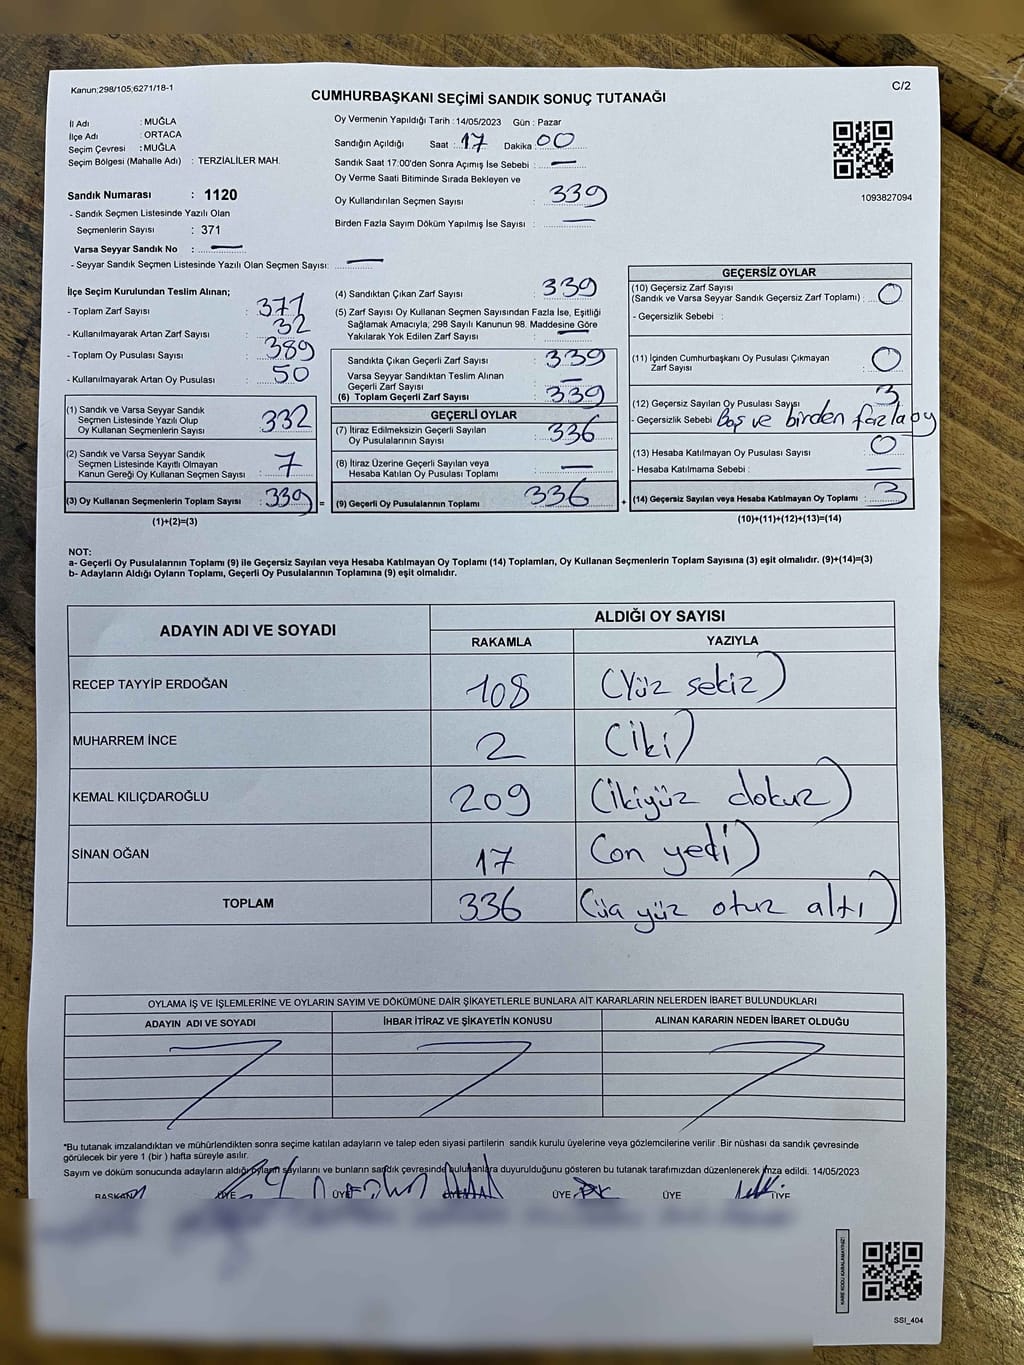 Kanun;298/105;6271/18-1
C/2
CUMHURBAŞKANI SEÇİMİ SANDIK SONUÇ TUTANAĞI
İl Adı : MUĞLA
İlçe Adı : ORTACA
Seçim Çevresi : MUĞLA
Seçim Bölgesi (Mahalle Adı) : TERZİALİLER MAH.
Sandık Numarası : 1120
- Sandık Seçmen Listesinde Yazılı Olan
Seçmenlerin Sayısı : 371
Varsa Seyyar Sandık No : —
- Seyyar Sandık Seçmen Listesinde Yazılı Olan Seçmen Sayısı: —
Oy Vermenin Yapıldığı Tarih : 14/05/2023 Gün : Pazar
Sandığın Açıldığı Saat : 17 Dakika : 00
Sandık Saat 17:00'den Sonra Açımış İse Sebebi : —
Oy Verme Saati Bitiminde Sırada Bekleyen ve
Oy Kullandırılan Seçmen Sayısı : 339
Birden Fazla Sayım Döküm Yapılmış İse Sayısı : —
1093827094
İlçe Seçim Kurulundan Teslim Alınan;
- Toplam Zarf Sayısı : 371
- Kullanılmayarak Artan Zarf Sayısı : 32
- Toplam Oy Pusulası Sayısı : 389
- Kullanılmayarak Artan Oy Pusulası : 50
(1) Sandık ve Varsa Seyyar Sandık
Seçmen Listesinde Yazılı Olup
Oy Kullanan Seçmenlerin Sayısı : 332
(2) Sandık ve Varsa Seyyar Sandık
Seçmen Listesinde Kayıtlı Olmayan
Kanun Gereği Oy Kullanan Seçmen Sayısı : 7
(3) Oy Kullanan Seçmenlerin Toplam Sayısı : 339 =
(1)+(2)=(3)
(4) Sandıktan Çıkan Zarf Sayısı : 339
(5) Zarf Sayısı Oy Kullanan Seçmen Sayısından Fazla İse, Eşitliği
Sağlamak Amacıyla; 298 Sayılı Kanunun 98. Maddesine Göre
Yakılarak Yok Edilen Zarf Sayısı : —
Sandıkta Çıkan Geçerli Zarf Sayısı : 339
Varsa Seyyar Sandıktan Teslim Alınan
Geçerli Zarf Sayısı : —
(6) Toplam Geçerli Zarf Sayısı : 339
GEÇERLİ OYLAR
(7) İtiraz Edilmeksizin Geçerli Sayılan
Oy Pusulalarının Sayısı : 336
(8) İtiraz Üzerine Geçerli Sayılan veya
Hesaba Katılan Oy Pusulası Toplamı : —
(9) Geçerli Oy Pusulalarının Toplamı : 336 +
GEÇERSİZ OYLAR
(10) Geçersiz Zarf Sayısı
(Sandık ve Varsa Seyyar Sandık Geçersiz Zarf Toplamı) : 0
- Geçersizlik Sebebi :
(11) İçinden Cumhurbaşkanı Oy Pusulası Çıkmayan
Zarf Sayısı : 0
(12) Geçersiz Sayılan Oy Pusulası Sayısı : 3
- Geçersizlik Sebebi Boş ve birden fazla oy
(13) Hesaba Katılmayan Oy Pusulası Sayısı : 0
- Hesaba Katılmama Sebebi : —
(14) Geçersiz Sayılan veya Hesaba Katılmayan Oy Toplamı : 3
(10)+(11)+(12)+(13)=(14)
NOT:
a- Geçerli Oy Pusulalarının Toplamı (9) ile Geçersiz Sayılan veya Hesaba Katılmayan Oy Toplamı (14) Toplamları, Oy Kullanan Seçmenlerin Toplam Sayısına (3) eşit olmalıdır. (9)+(14)=(3)
b- Adayların Aldığı Oyların Toplamı, Geçerli Oy Pusulalarının Toplamına (9) eşit olmalıdır.
ADAYIN ADI VE SOYADI ALDIĞI OY SAYISI
RAKAMLA YAZIYLA
RECEP TAYYİP ERDOĞAN 108 (Yüz sekiz)
MUHARREM İNCE 2 (iki)
KEMAL KILIÇDAROĞLU 209 (ikiyüz dokuz)
SİNAN OĞAN 17 (on yedi)
TOPLAM 336 (üç yüz otuz altı)
OYLAMA İŞ VE İŞLEMLERİNE VE OYLARIN SAYIM VE DÖKÜMÜNE DAİR ŞİKAYETLERLE BUNLARA AİT KARARLARIN NELERDEN İBARET BULUNDUKLARI
ADAYIN ADI VE SOYADI İHBAR İTİRAZ VE ŞİKAYETİN KONUSU ALINAN KARARIN NEDEN İBARET OLDUĞU
*Bu tutanak imzalandıktan ve mühürlendikten sonra seçime katılan adayların ve talep eden siyasi partilerin sandık kurulu üyelerine veya gözlemcilerine verilir .Bir nüshası da sandık çevresinde
görülecek bir yere 1 (bir ) hafta süreyle asılır.
Sayım ve döküm sonucunda adayların aldığı oyların sayılarını ve bunların sandık çevresinde bulunanlara duyurulduğunu gösteren bu tutanak tarafımızdan düzenlenerek imza edildi. 14/05/2023
BAŞKAN ÜYE ÜYE ÜYE ÜYE ÜYE
KARE KODU KARALAMAYINIZ!
SSI_404